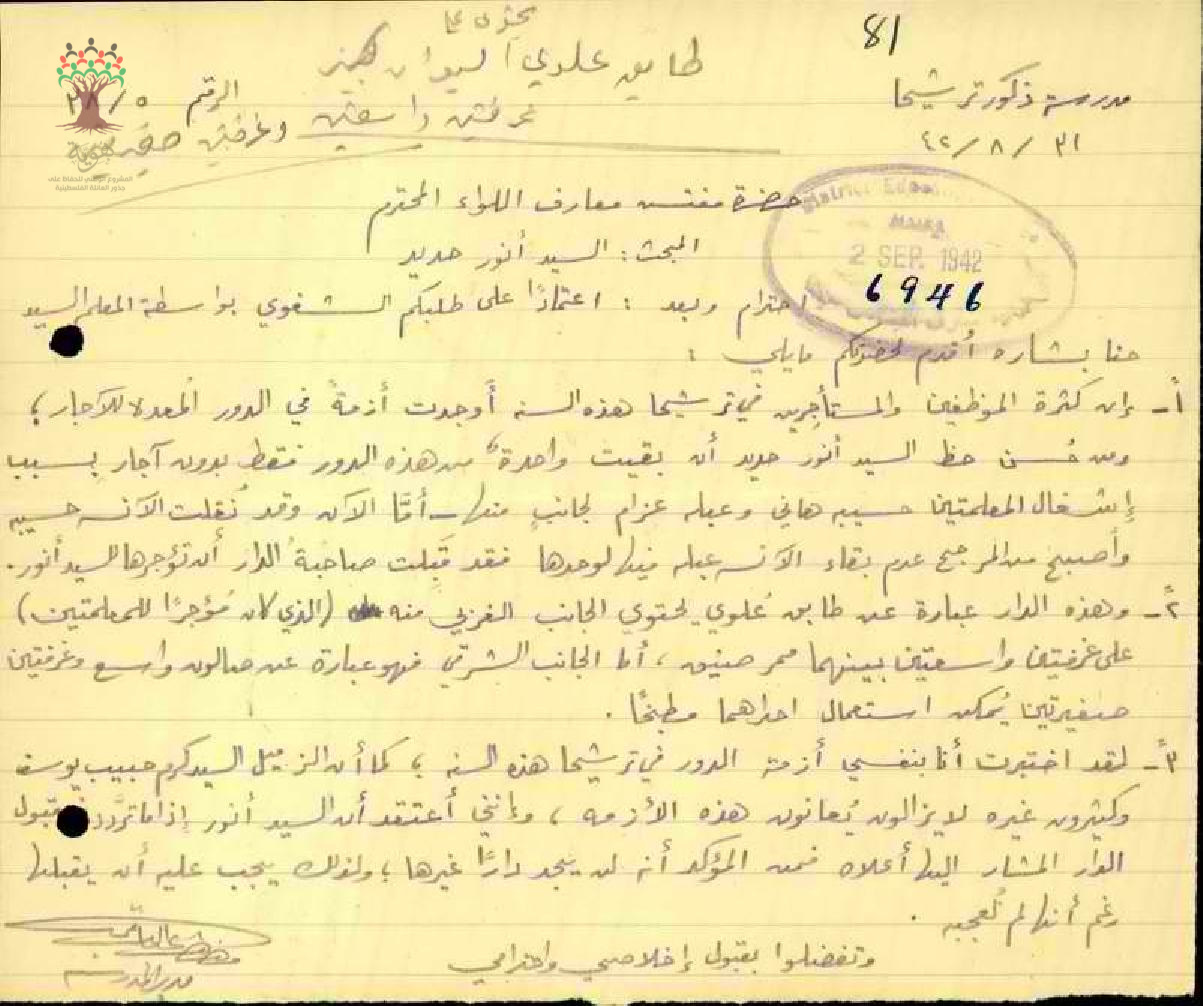 81
يحتوي على
طابق علوي الديوان كبير
غرفتين واسعتين وغرفتين صغيرتين
الرقم ٢٨/٥
مدرسة ذكور ترشيحا
٣١/٨/٤٢
المشروع الوطني للحفاظ على
جذور العائلة الفلسطينية
حضرة مفتش معارف اللواء المحترم
المبحث: السيد أنور حديد
District Educ
HAIFA
2 SEP. 1942
6946
احترام وبعد: اعتمادًا على طلبكم الشفوي بواسطة المعلم السيد
حنا بشاره أُقدم لحضرتكم مايلي:
١ً- إن كثرة الموظفين والمستأجرين في ترشيحا هذه السنه أوجدت أزمةً في الدور المُعدة للآجار؛
ومن حُسن حظ السيد أنور حديد أن بقيت واحدة من هذه الدور فقط بدون آجار بسبب
إشغال المعلمتين حسيبه هاني وعبله عزام لجانبٍ منها - أمَّا الآن وقد نُقلت الآنسه حسيبه
وأصبح من المرجح عدم بقاء الآنسه عبله فيها لوحدها فقد قَبِلت صاحبةُ الدار أن تؤجرها للسيد أنور.
٢ً- وهذه الدار عبارة عن طابق عُلوي يحتوي الجانب الغربي منه (الذي كان مُؤجرًا للمعلمتين)
على غرفتين واسعتين بينهما ممر ضيق، أما الجانب الشرقي فهو عبارة عن صالون واسع وغرفتين
صغيرتين يُمكن استعمال احداهما مطبخًا.
٣ً- لقد اختبرت أنا بنفسي أزمة الدور في ترشيحا هذه السنه؛ كما أن الزميل السيد كرم حبيب يوسف
وكثيرون غيره لا يزالون يُعانون هذه الأزمه، وإنني أعتقد أن السيد أنور إذا ما تردَّد بقبول
الدار المشار اليها أعلاه فمن المؤكد أنه لن يجد دارًا غيرها؛ ولذلك يجب عليه أن يقبلها
رغم أنها لم تُعجبه.
وتفضلوا بقبول إخلاصي واحترامي
مدير المدرسه